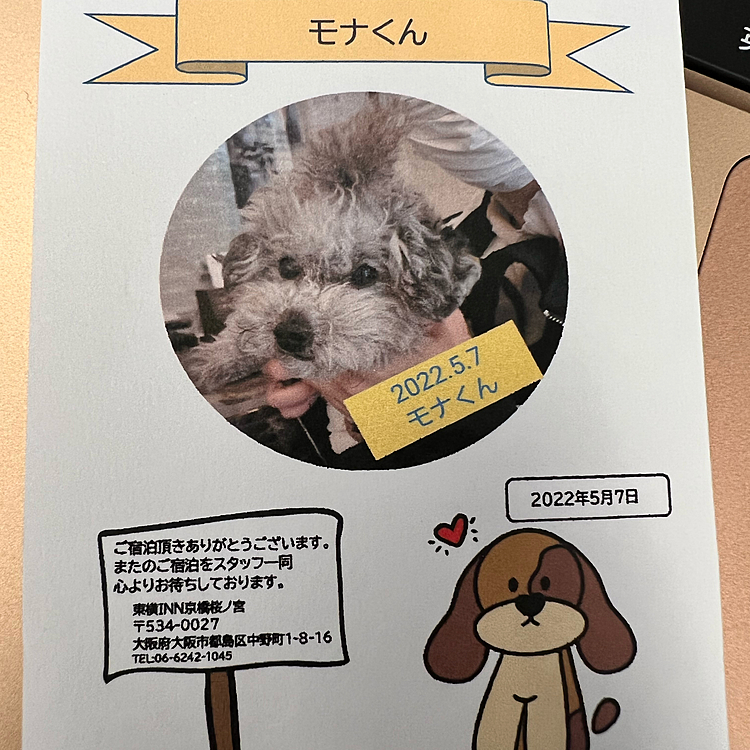 モナくん
2022.5.7
モナくん
2022年5月7日
ご宿泊頂きありがとうございます。
またのご宿泊をスタッフ一同
心よりお待ちしております。
東横INN京橋桜ノ宮
〒534-0027
大阪府大阪市都島区中野町1-8-16
TEL:06-6242-1045